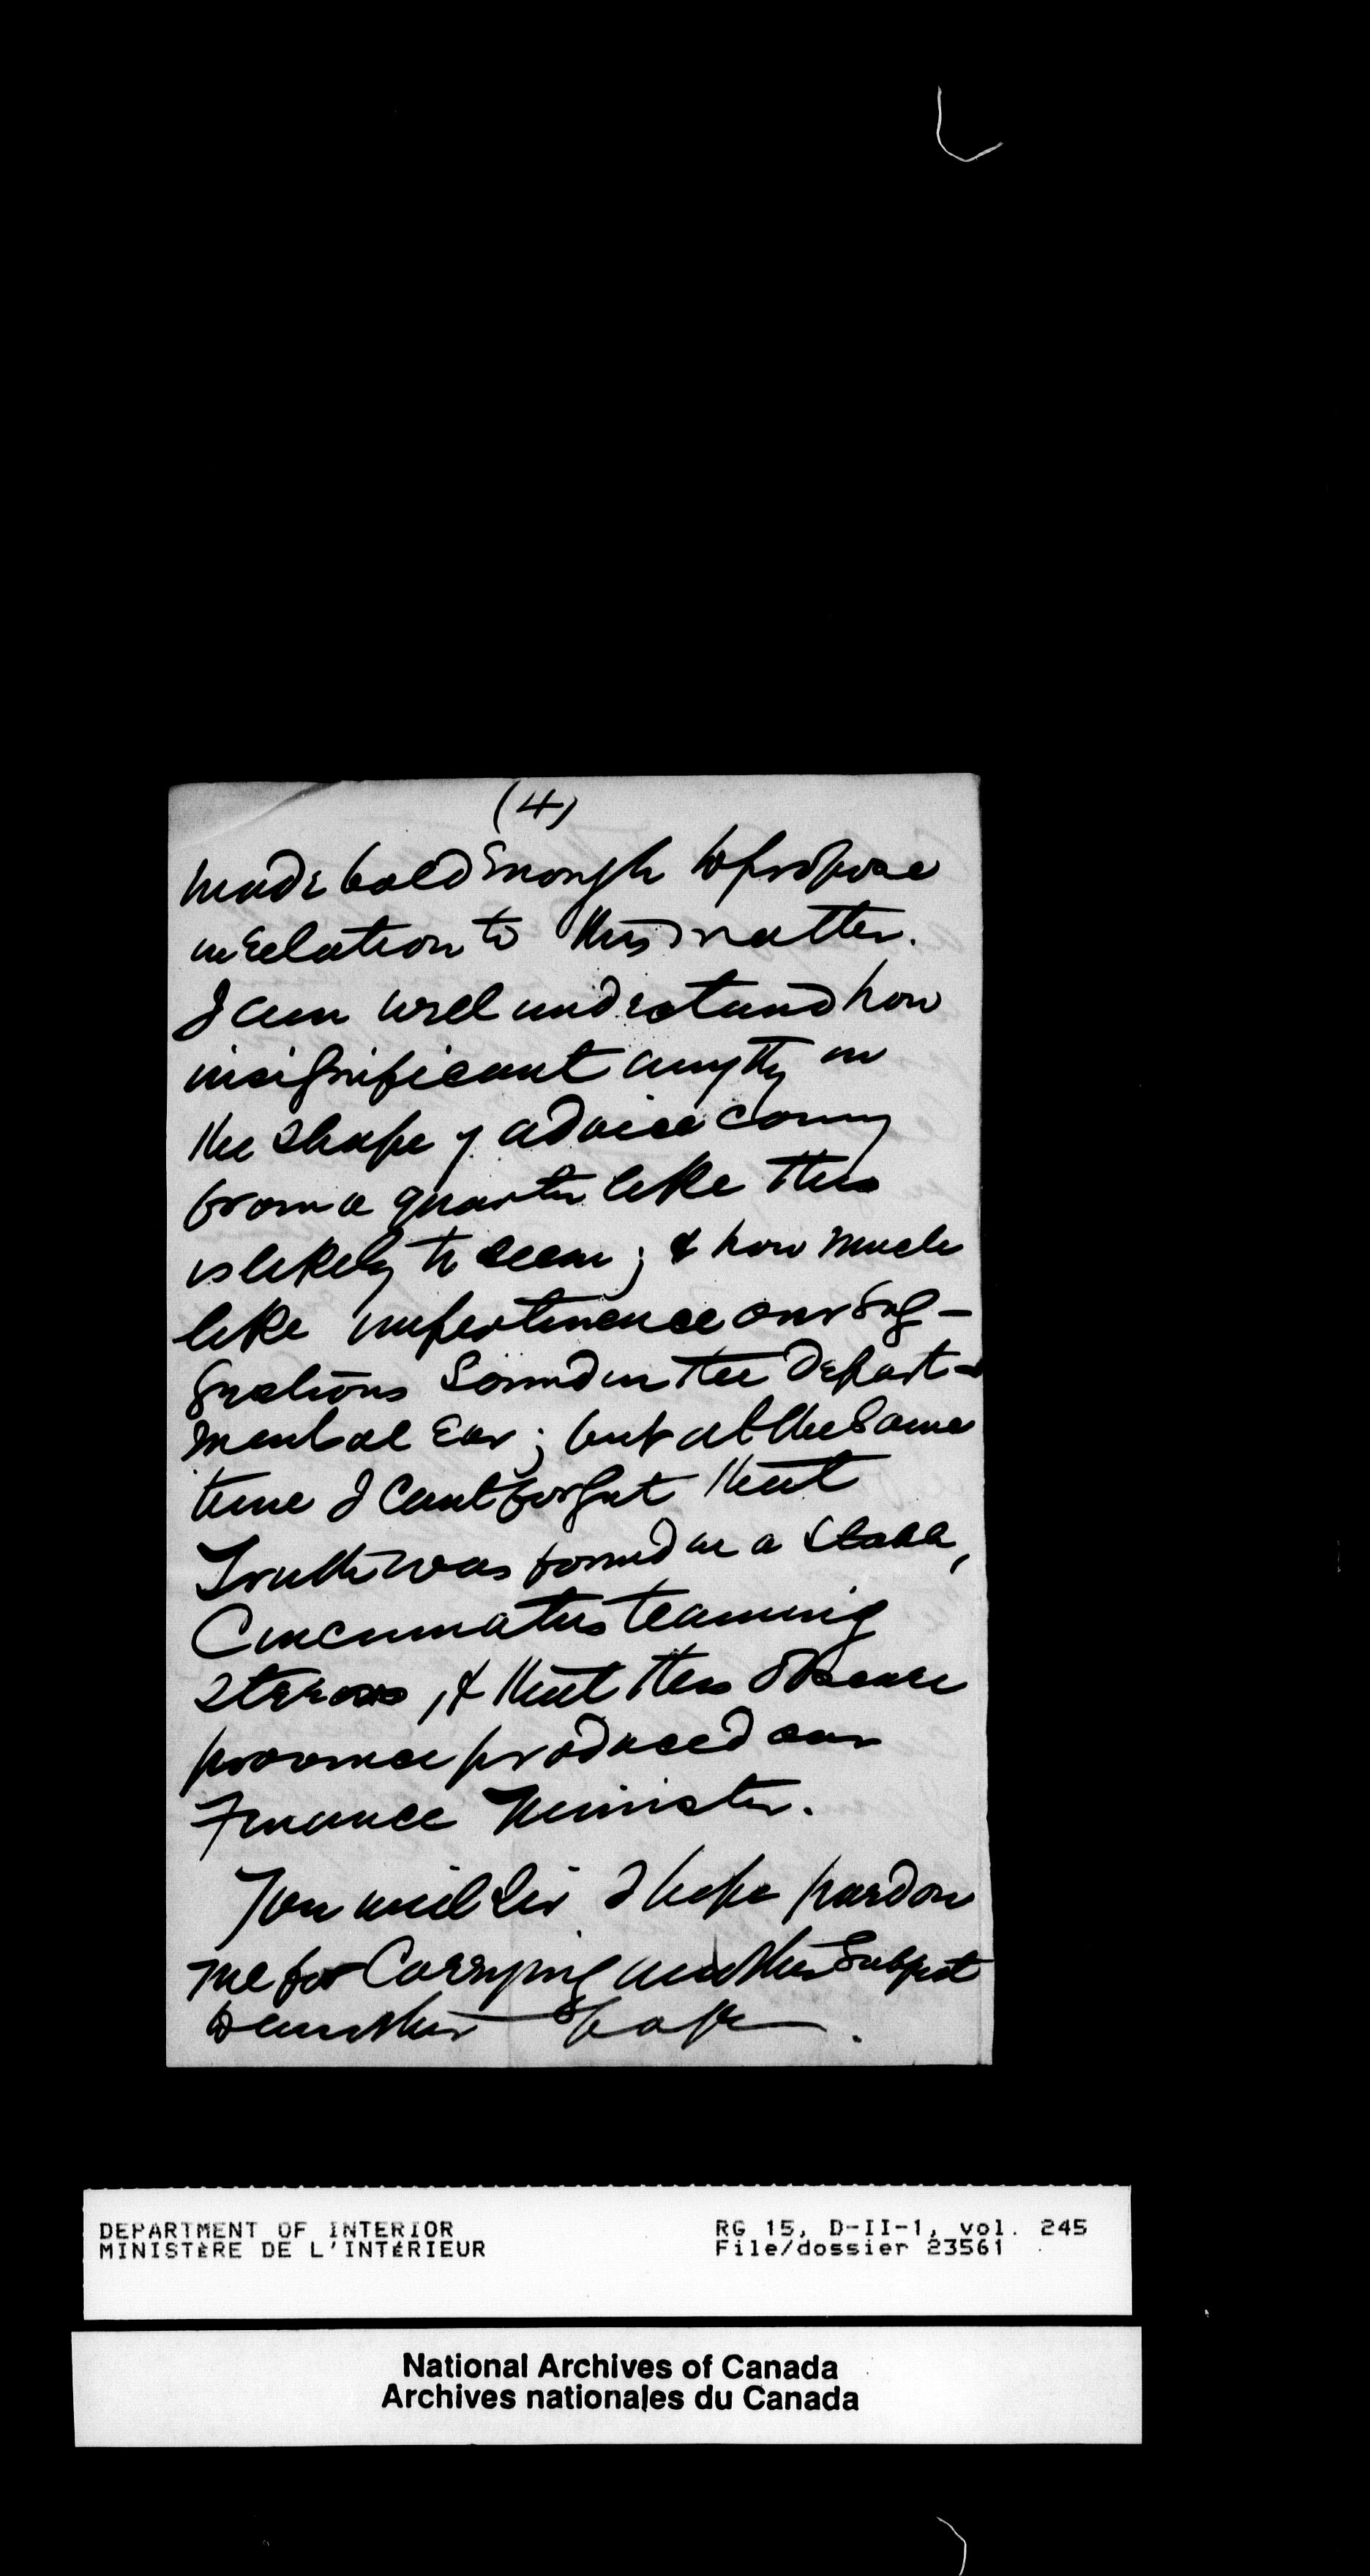 (4)
made bold enough to propose
in relation to this matter.
I can well understand how
insignificant anythg in
the shape of advice coming
from a quarter like this
is likely to seem; & how much
like impertinence our sug-
gestions sound in the Depart-
mental Ear; but at the same
time I cant forget that
Truth was found in a stable,
Cincinnatus teaming
steers, & that this obscure
province produced our
Finance Minister.
You will Sir I hope pardon
me for Carrying another Subject
to another page.
DEPARTMENT OF INTERIOR
MINISTÈRE DE L'INTÉRIEUR
RG 15, D-II-1, vol. 245
File/dossier 23561
National Archives of Canada
Archives nationales du Canada